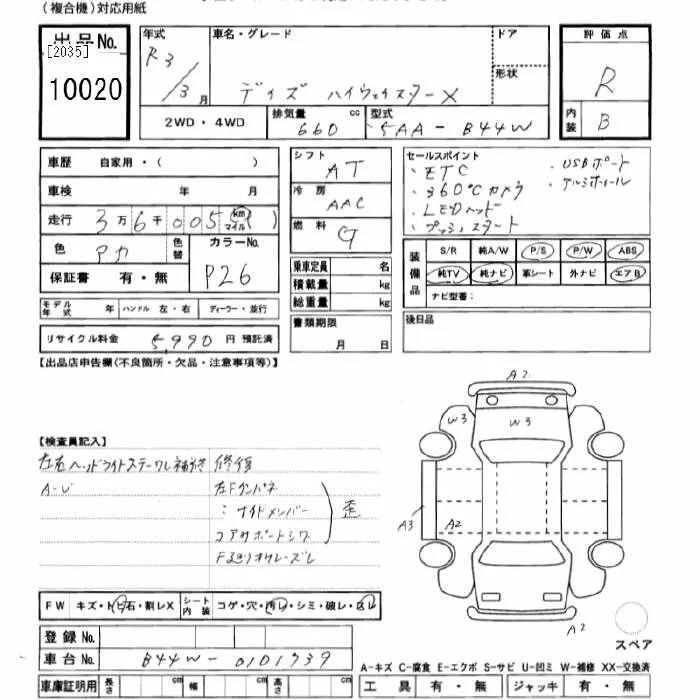 (複合機)対応用紙
出品No.
[2035]
10020
年式
R3/3月
車名・グレード
デイズ ハイウェイスターX
ドア
形状
評価点
R
内装
B
2WD・4WD
排気量
660
cc
型式
5AA-B44W
車歴
自家用・( )
車検
年 月
走行
3万6千005
km
マイル
色
アカ
色替
カラーNo.
P26
保証書
有・無
モデル年式
年
ハンドル
左・右
ディーラー・並行
リサイクル料金
5,990
円 預託済
シフト
AT
冷房
AAC
燃料
G
乗車定員
名
積載量
kg
総重量
kg
書類期限
月 日
セールスポイント
・ETC
・360°カメラ
・LEDヘッド
・プッシュスタート
・USBポート
・アルミホイール
装備品
S/R
純A/W
P/S
P/W
ABS
純TV
純ナビ
革シート
外ナビ
エアB
ナビ型番:
後日品
【出品店申告欄(不良箇所・欠品・注意事項等)】
【検査員記入】
左右ヘッドライトステー
補修
修復
A-U
左Fインパネ
サイドメンバー
コアサポート
歪
A2
W3
W3
A3
A2
A2
スペア
FW
キズ・トビ石・割レX
シート内装
コゲ・穴・汚レ・シミ・破レ・スレ
登録No.
車台No.
B44W-0101939
車庫証明用
長さ
cm
幅
cm
高さ
cm
A-キズ C-腐食 E-エクボ S-サビ U-凹ミ W-補修 XX-交換済
工具
有・無
ジャッキ
有・無